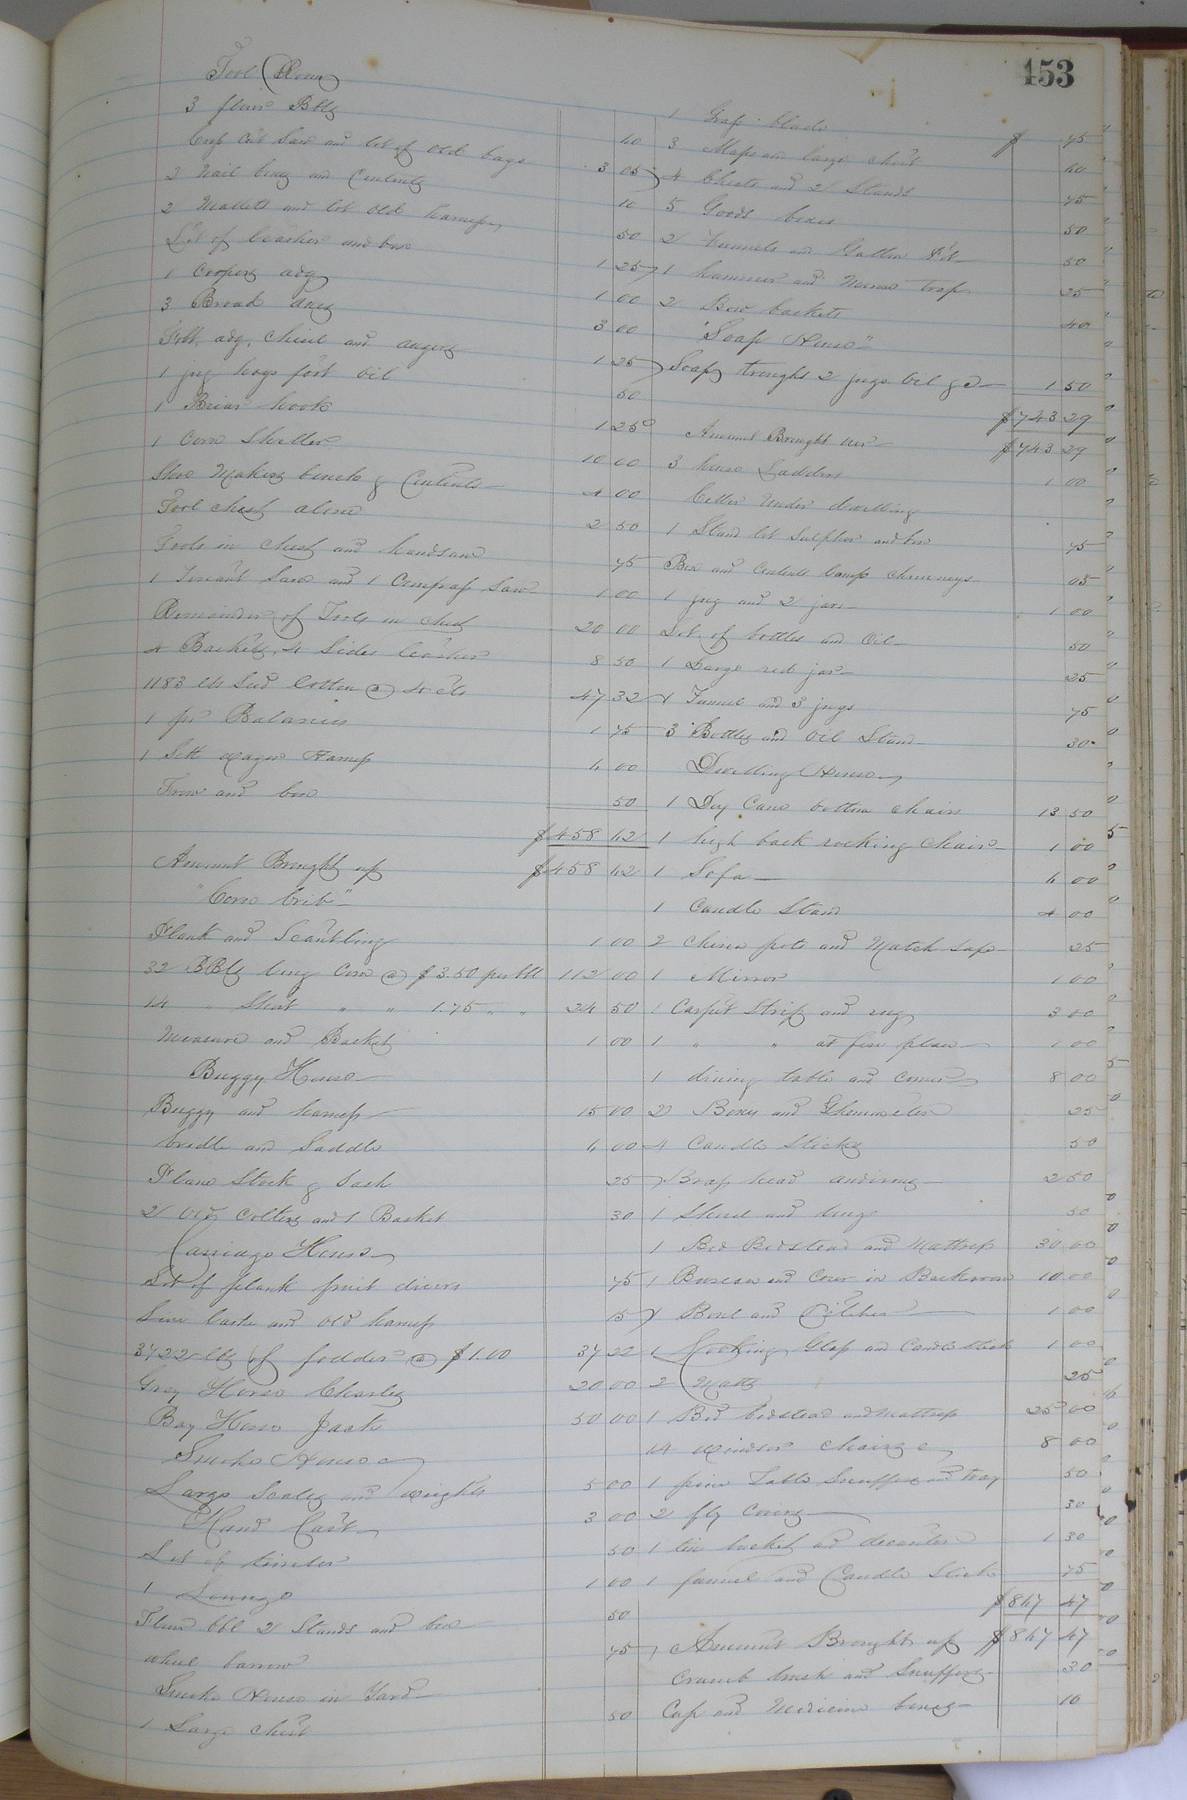 153
Tool Room
3 flour Bbls 60
Crop Cut Saw and lot of old bags 3 05
2 Nail boxes and Contents 10
2 Mallets and lot old harness 50
Lot of leather and box 1 25
1 Coopers adz 1 00
3 Broad axes 3 00
Foot adz, Chisel and augers 1 25
1 jug hogs foot oil 50
1 Briar hook 1 25
1 Corn Sheller 10 00
Shoe Makers bench & Contents 4 00
Tool chest alone 2 50
Tools in chest and handsaw 75
1 Tenant Saw and 1 Compass Saw 1 00
Remainder of Tools in chest 20 00
4 Baskets, 4 Sides leather 8 50
1183 lbs Seed Cotton @ 4 cts 47 32
1 pr Balances 1 75
1 Sett wagon Harness 6 00
Trow and box 50
$458 62
Amount Brought up $458 62
"Corn Crib"
Plank and Scantling 1 00
32 BBls long Corn @ $3.50 per bbl 112 00
14 " Short " " 1.75 " " 24 50
Measure and Basket 1 00
Buggy House
Buggy and harness 15 00
bridle and Saddle 6 00
Plane Stock & Sash 25
2 old Colters and 1 Basket 30
Carriage House
Lot of plank fruit driers 75
and old harness 15
3722 lbs of fodder @ $1.00 37 22
Grey Horse Charley 20 00
Bay Horse Jack 50 00
Smoke House
Large Scales and weights 5 00
Hand Cart 3 00
Lot of timber 50
1 Lounge 1 00
Flour bbl 2 Stands and box 50
wheel barrow 75
Smoke House in Yard
1 Large chest 50
1 Grass blade $ 75
3 Maps and large chest 60
4 Chests and 2 Stands 75
5 Goods boxes 50
2 Funnels and Gallon Pot 50
1 hammer and Mouse trap 25
2 Bow baskets 40
"Soap House"
Soap, troughs 2 jugs Oil &c 1 50
$743 29
Amount Brought over $743 29
3 house Ladders 1 00
Celler Under dwelling
1 Stand lot Sulpher and box 75
Box and Contents lamp chimneys 05
1 jug and 2 jars 1 00
Lot of bottles and Oil 50
1 Large red jar 25
1 Funnel and 3 jugs 75
3 Bottles and Oil Stand 30
Dwelling House
1 Doz Cane bottom chairs 13 50
1 high back rocking chair 1 00
1 Sofa 6 00
1 Candle Stand 4 00
2 china pots and Match Safe 25
1 Mirror 1 00
1 Carpet Strip and rug 3 00
1 " " at fire place 1 00
1 dining table and cover 8 00
2 Boxes and Thermometer 25
4 Candle Sticks 50
Brass head andirons 2 50
1 Shovel and tongs 50
1 Bed Bedstead and Mattress 30 00
1 Bureau and Cover in Backroom 10 00
1 Bowl and Pitcher 1 00
1 Looking Glass and Candle Stick 1 00
2 Matts 25
1 Bed bedstead and Mattress 25 00
14 windsor chairs 8 00
1 pine Table Snuffers and tray 50
2 fly covers 30
1 tin bucket and decanter 1 30
1 funnel and Candle Stick 75
$867 47
Amount Brought up $867 47
Crumb brush and Snuffers 30
Cup and Medicine boxes 10